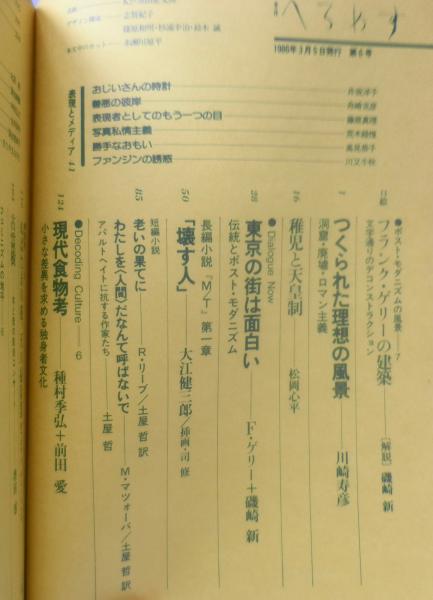 へるめす
1986年3月5日発行 第6号
志賀紀子
篠原和明・杉浦幸治・鈴木 誠
表現とメディア 41
おじいさんの時計
善悪の彼岸
舟崎克彦
表現者としてのもう一つの目
藤原真理
写真私情主義
荒木経惟
勝手なおもい
高見恭子
ファンジンの誘惑
川又千秋
口絵
●ポスト・モダニズムの風景——7
フランク・ゲーリーの建築
文字通りのデコンストラクション
〔解説〕磯崎 新
1
つくられた理想の風景
洞窟・廃墟・ロマン主義
川崎寿彦
16
稚児と天皇制
松岡心平
28
●Dialogue Now
東京の街は面白い
伝統とポスト・モダニズム
F・ゲリー+磯崎 新
50
長編小説『M/T』第一章
「壊す人」
大江健三郎/挿画・司 修
85
短編小説
老いの果てに
R・リーブ/土屋 哲 訳
わたしを〈人間〉だなんて呼ばないで
M・マツォーバ/土屋 哲 訳
アパルトヘイトに抗する作家たち
土屋 哲
121
●Decoding Culture——6
現代食物考
小さな差異を求める独身者文化
種村季弘+前田 愛